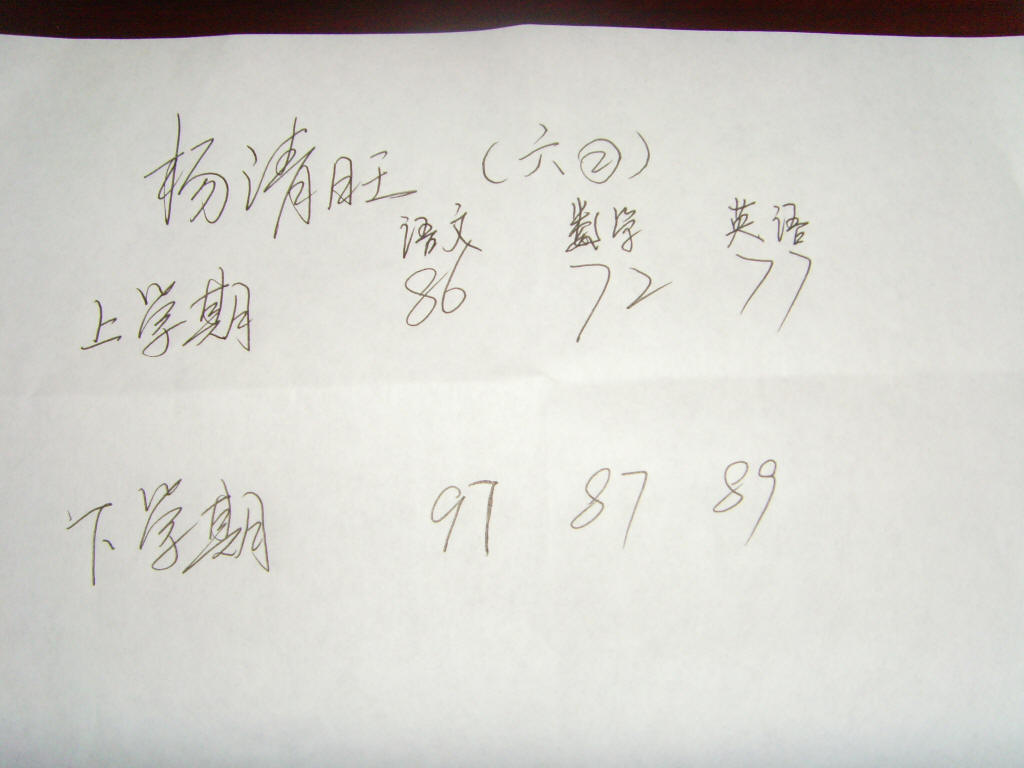 杨清旺 (六②)
语文 数学 英语
上学期 86 72 77
下学期 97 87 89